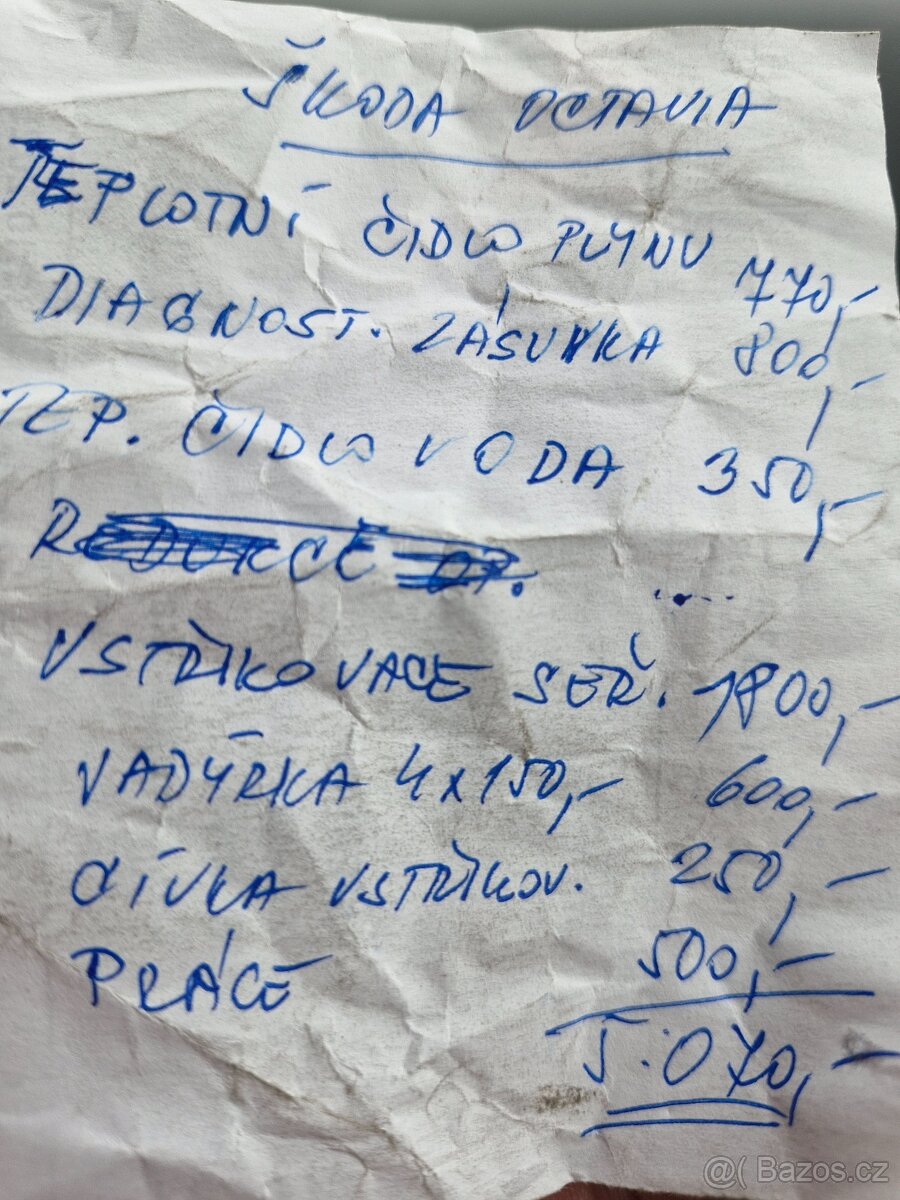 ŠKODA OCTAVIA
TEPLOTNÍ ČIDLO PLYNU 770,-
DIAGNOST. ZÁSUVKA 800,-
TEP. ČIDLO VODA 350,-
REDUKCE
VSTŘIKOVACE SEŘ. 1800,-
VADÝRKA 4x150,- 600,-
CÍVKA VSTŘIKOV. 250,-
PRÁCE 500,-
5.070,-
@( Bazos.cz